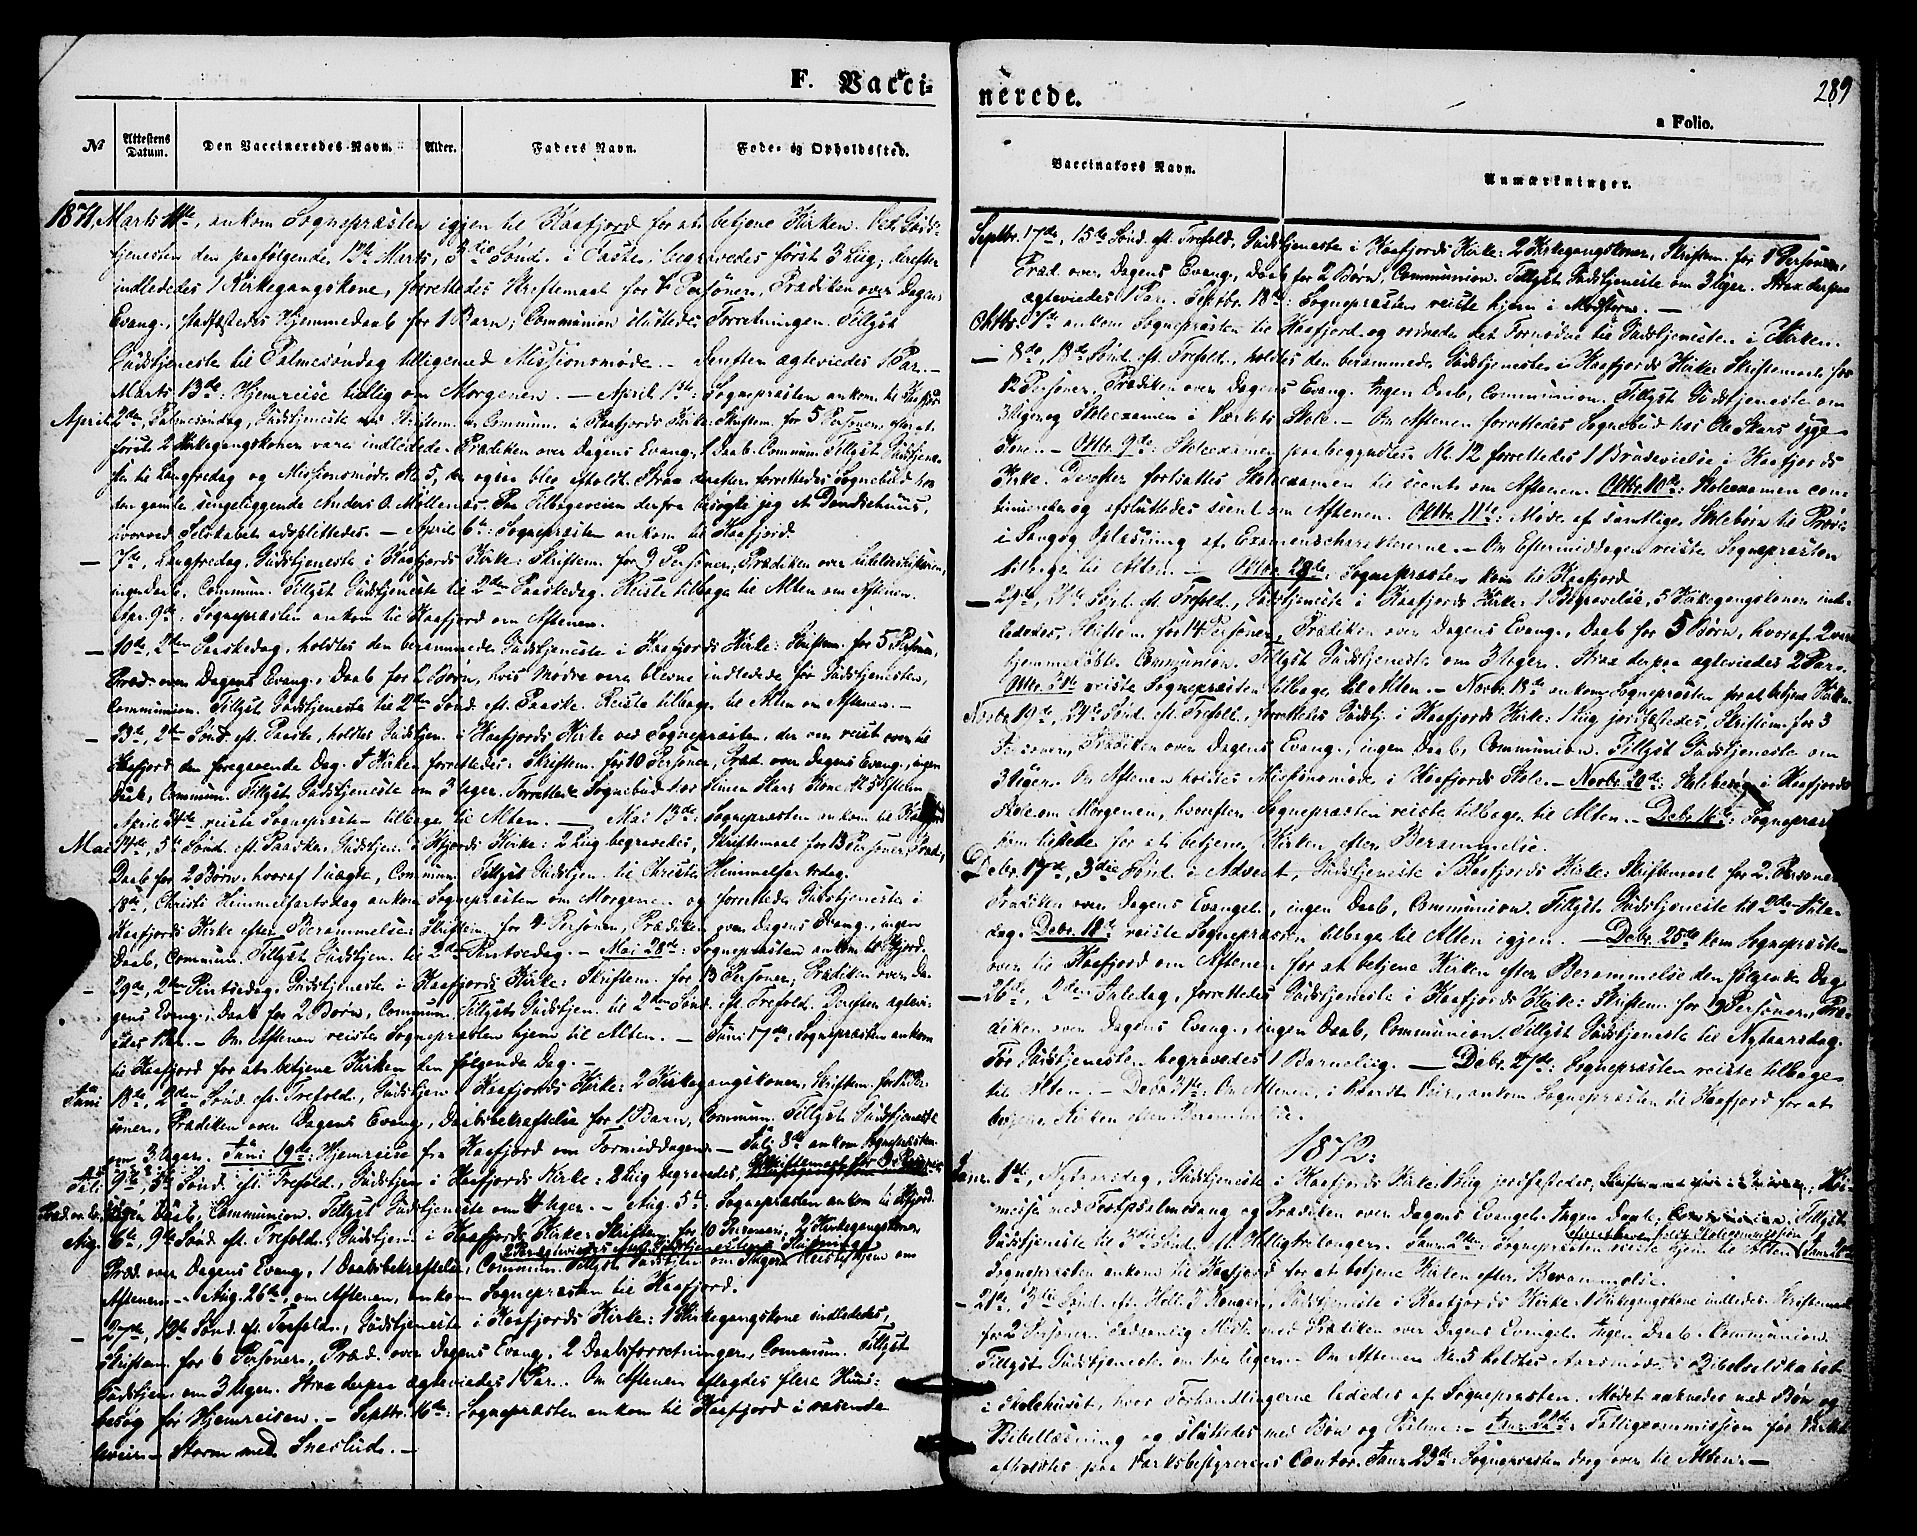 F. Vacci-
nerede.
289
a Folio.
No
Attestens Datum.
Den Vaccineredes Navn.
Alder.
Faders Navn.
Føde- og Opholdssted.
Vaccinators Navn.
Anmærkninger.
1871, Marts 11te, ankom Sognepræsten igjen til Kaafjord for at betjene Kirken. Ved Guds-
tjenesten den paafølgende 12te Marts, 3die Sønd. i Faste, begravedes først 3 Liig, derefter
indlededes 1 Kirkegangskone, forrettedes Skriftemaal for 7 Personer, Prædiken over Dagens
Evang., stadfæstedes Hjemmedaab for 1 Barn; Communion sluttede Forretningen. Tillyst
Gudstjeneste til Palmesøndag tilligemed Missionsmøde. – Derefter ægteviedes 1 Par. –
Marts 13de: Hjemreise tidlig om Morgenen. – April 1ste: Sognepræsten ankom til Kaafjord
April 2den, Palmesøndag, Gudstjeneste med Skriftem. og Commun. i Kaafjords Kirke: Skriftem. for 5 Personer, efterat
først 2 Kirkegangskoner vare indledede. Prædiken over Dagens Evang., 1 Daab. Commun. Tillyst Gudstjene-
ste til Langfredag og Missionsmøde Kl. 5, der ogsaa blev afholdt. Strax derefter forrettedes Sognebud hos
den gamle sengeliggende Anders O. Møllenæs. Paa Tilbageveien derfra besøgte jeg et Dandsehuus,
hvorved Selskabet adsplittedes. – April 6te: Sognepræsten ankom til Kaafjord.
– 7de, Langfredag, Gudstjeneste i Kaafjords Kirke: Skriftem. for 9 Personer, Prædiken over Lidelseshistorien,
ingen Daab, Commun. Tillyst Gudstjeneste til 2den Paaskedag. Reiste tilbage til Alten om Aftenen.
Apr. 9de: Sognepræsten ankom til Kaafjord om Aftenen.
– 10de, 2den Paaskedag, holdtes den berammede Gudstjeneste i Kaafjords Kirke: Skriftem. for 5 Personer,
Præd. over Dagens Evang., Daab for 2 Børn, hvis Mødre vare blevne indledede før Gudstjenesten,
Communion. Tillyst Gudstjeneste til 2den Sønd. eft. Paaske. Reiste tilbage til Alten om Aftenen. –
– 23de, 2den Sønd. eft. Paaske, holdtes Gudstjen. i Kaafjords Kirke ved Sognepræsten, der var reist over til
Kaafjord den foregaaende Dag. I Kirken forrettedes: Skriftem. for 10 Personer, Præd. over Dagens Evang., ingen
Daab, Commun. Tillyst Gudstjeneste om 3 Uger. Forrettede Sognebud hos Simen Skars Kone Kl. 5 Eftm.
April 24de reiste Sognepræsten tilbage til Alten. – Mai 13de: Sognepræsten ankom til Kaafjord
Mai 14de, 5te Sønd. eft. Paaske, Gudstjen. i Kfjords Kirke: 2 Liig begravedes, Skriftemaal for 13 Personer, Præd.,
Daab for 2 Børn, hvoraf 1 uægte, Commun. Tillyst Gudstjen. til Christi Himmelfartsdag.
18de, Christi Himmelfartsdag ankom Sognepræsten om Morgenen og forrettede Gudstjeneste i
Kaafjords Kirke efter Berammelse: Skriftem. for 4 Personer, Prædiken over Dagens Evang., ingen
Daab, Commun. Tillyst Gudstjen. til 2den Pintsedag. – Mai 28de: Sognepræsten ankom til Kfjord.
– 29de, 2den Pintsedag, Gudstjeneste i Kaafjords Kirke: Skriftem. for 13 Personer, Prædiken over Da-
gens Evang., Daab for 2 Børn, Commun. Tillyst Gudstjen. til 2den Sønd. eft. Trefold. Derefter ægtevi-
edes 1 Par. – Om Aftenen reiste Sognepræsten hjem til Alten. – Juni 17de: Sognepræsten ankom
til Kaafjord for at betjene Kirken den følgende Dag. –
Juni 18de, 2den Sønd. eft. Trefold., Gudstjen. i Kaafjords Kirke: 2 Kirkegangskoner, Skriftem. for 12 Per-
soner, Prædiken over Dagens Evang., Daabsbekræftelse for 1 Barn, Commun. Tillyst Gudstjeneste
om 3 Uger. Juni 19de: Hjemreise fra Kaafjord om Formiddagen. – Juli 8de ankom Sognepræsten.
Juli 9de, 5te Sønd. eft. Trefold., Gudstjen. i Kaafjords Kirke: 2 Liig begravedes,
ingen Daab, Communion. Tillyst Gudstjeneste om 4 Uger. – Aug. 5te: Sognepræsten ankom til Kfjord.
Aug. 6te, 9de Sønd. eft. Trefold., Gudstjen. i Kaafjords Kirke: Skriftem. for 10 Personer, 2 Kirkegangskoner,
Præd. over Dagens Evang., 1 Daabsbekræftelse, Commun. Tillyst Gudstjen. om 3 Uger. Reiste hjem om
Aftenen. – Aug. 26de, om Aftenen, ankom Sognepræsten til Kaafjord.
– 27de, 12te Sønd. eft. Trefold., Gudstjeneste i Kaafjords Kirke: 1 Kirkegangskone indledtes,
Skriftem. for 6 Personer, Præd. over Dagens Evang., 2 Daabsforretninger, Commun. Tillyst
Gudstjen. om 3 Uger. Strax derpaa ægteviedes 1 Par. Om Aftenen aflagdes flere Huus-
besøg før Hjemreisen. – Septbr. 16de: Sognepræsten ankom til Kaafjord i rasende
Storm med Sneslud. –
Septbr. 17de, 15de Sønd. eft. Trefold., Gudstjeneste i Kaafjords Kirke: 2 Kirkegangskoner, Skriftem. for 8 Personer,
Præd. over Dagens Evang., Daab for 2 Børn, Communion. Tillyst Gudstjeneste om 3 Uger. Strax derpaa
ægteviedes 1 Par. Septbr. 18de: Sognepræsten reiste hjem i Modstorm. –
Oktbr. 7de ankom Sognepræsten til Kaafjord og ordnede det Fornødne til Gudstjenesten i Kirken.
– 8de, 18de Sønd. eft. Trefold., holdtes den berammede Gudstjeneste i Kaafjords Kirke: Skriftemaal for
12 Personer, Prædiken over Dagens Evang. Ingen Daab, Communion. Tillyst Gudstjeneste om
3 Uger og Skoleexamen i Værkets Skole. – Om Aftenen forrettedes Sognebud hos Ole Skars syge
Kone. – Oktbr. 9de: Skoleexamen paabegyndtes. Kl. 12 forrettedes 1 Brudevielse i Kaafjords
Kirke. Derefter fortsattes Skoleexamen til seent om Aftenen. Oktbr. 10de: Skoleexamen con-
tinueredes og afsluttedes seent om Aftenen. Oktbr. 11te: Møde af samtlige Skolebørn til Prøve
i Sang og Oplæsning af Examenscharaktererne. – Om Eftermiddagen reiste Sognepræsten
tilbage til Alten. – Oktbr. 28de: Sognepræsten kom til Kaafjord
– 29de, 21de Sønd. eft. Trefold., Gudstjeneste i Kaafjords Kirke: 1 Begravelse, 3 Kirkegangskoner ind-
lededes, Skriftem. for 14 Personer, Prædiken over Dagens Evang., Daab for 5 Børn, hvoraf 2 vare
hjemmedøbte. Communion. Tillyst Gudstjeneste om 3 Uger. Strax derpaa ægteviedes 2 Par.
Oktbr. 30te reiste Sognepræsten tilbage til Alten. – Novbr. 18de ankom Sognepræsten for at betjene Kirken
Novbr. 19de, 24de Sønd. eft. Trefold., forrettedes Gudstj. i Kaafjords Kirke: 1 Liig jordfæstedes, Skriftem. for 3
Personer, Prædiken over Dagens Evang., ingen Daab, Communion. Tillyst Gudstjeneste om
3 Uger. Om Aftenen holdtes Missionsmøde i Kaafjords Skole. – Novbr. 20de: Skolebesøg i Kaafjords
Skole om Morgenen, hvorefter Sognepræsten reiste tilbage til Alten. – Debr. 16de: Sognepræsten
for at betjene Kirken efter Berammelse.
Debr. 17de, 3die Sønd. i Advent, Gudstjeneste i Kaafjords Kirke: Skriftemaal for 2 Personer
Prædiken over Dagens Evangel., ingen Daab, Communion. Tillyst Gudstjeneste til 2den Jule-
dag. Debr. 18de reiste Sognepræsten tilbage til Alten igjen. – Debr. 25de kom Sognepræsten
over til Kaafjord om Aftenen for at betjene Kirken efter Berammelse den følgende Dag.
– 26de, 2den Juledag, forrettedes Gudstjeneste i Kaafjords Kirke: Skriftem. for 9 Personer, Præ-
diken over Dagens Evang., ingen Daab, Communion. Tillyst Gudstjeneste til Nytaarsdag.
Før Gudstjenesten begravedes 1 Barnelig. – Debr. 27de: Sognepræsten reiste tilbage
til Alten. – Debr. 31te: Om Aftenen, i haardt Veir, ankom Sognepræsten til Kaafjord for at
betjene Kirken efter Berammelse.
1872:
Janr. 1ste, Nytaarsdag, Gudstjeneste i Kaafjords Kirke: 1 Liig jordfæstedes, Høi-
messe med Festpsalmesang og Prædiken over Dagens Evangel. Ingen Daab, Tillyst
Gudstjeneste til 3die Sønd. eft. Helligtrekonger. Janr. 2den: Sognepræsten reiste hjem til Alten. Janr. 20de
Sognepræsten ankom til Kaafjord for at betjene Kirken efter Berammelse.
– 21de, 3die Sønd. eft. Hell. 3 Konger, Gudstjeneste i Kaafjords Kirke: 1 Kirkegangskone indledtes. Skriftemaal
for 2 Personer. Sædvanlig Messe med Prædiken over Dagens Evangel. Ingen Daab. Communion.
Tillyst Gudstjeneste om tre Uger. Om Aftenen Kl. 5 holdtes Aarsmøde i Bibelselskabet
i Skolehuset, hvor Forhandlingerne lededes af Sognepræsten. Mødet aabnedes med Bøn og
Bibellæsning og sluttedes med Bøn og Psalme. – Janr. 22de: Fattigcommission for Værket
afholdtes paa Værksbestyrerens Contor. Janr. 23de: Sognepræsten drog over til Alten. –